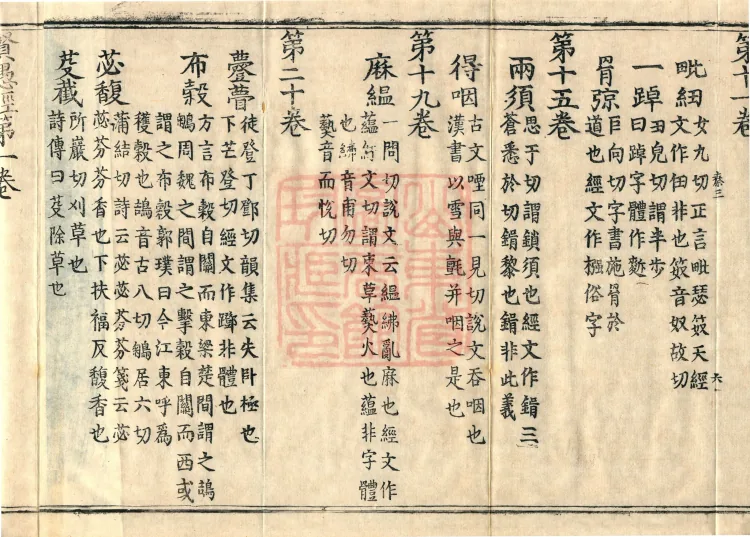 第十一卷
叅三
毗紐 女九切正言毗瑟笯天經
文作伹非也笯音奴故切
六
一踔 丑皃切謂半步
曰踔字體作
罥弶 巨向切字書施罥於
道也經文作俗字
第十五卷
兩須 思于切謂鎖須也經文作三
蒼悉於切黎也非此義
得咽 古文㖶同一見切說文吞咽也
漢書以雪與氈并咽之是也
第十九卷
麻縕 一問切說文云縕紼亂麻也經文作
蘊於文切謂束草爇火也蘊非字體
也紼音甫勿切
爇音而悅切
第二十卷
瞢 徒登丁鄧切韻集云失卧極也
下芒登切經文作非體也
布穀 方言布穀自關而東梁楚間謂之鴶
鵴周魏之間謂之擊穀自關而西或
謂之布穀郭璞曰今江東呼為
穫穀也鴶音古八切鵴居六切
苾馥 蒲結切詩云苾苾芬芬箋云苾
苾芬芬香也下扶福反馥香也
芟截 所巖切刈草也
詩傳曰芟除草也
賢愚經第一卷